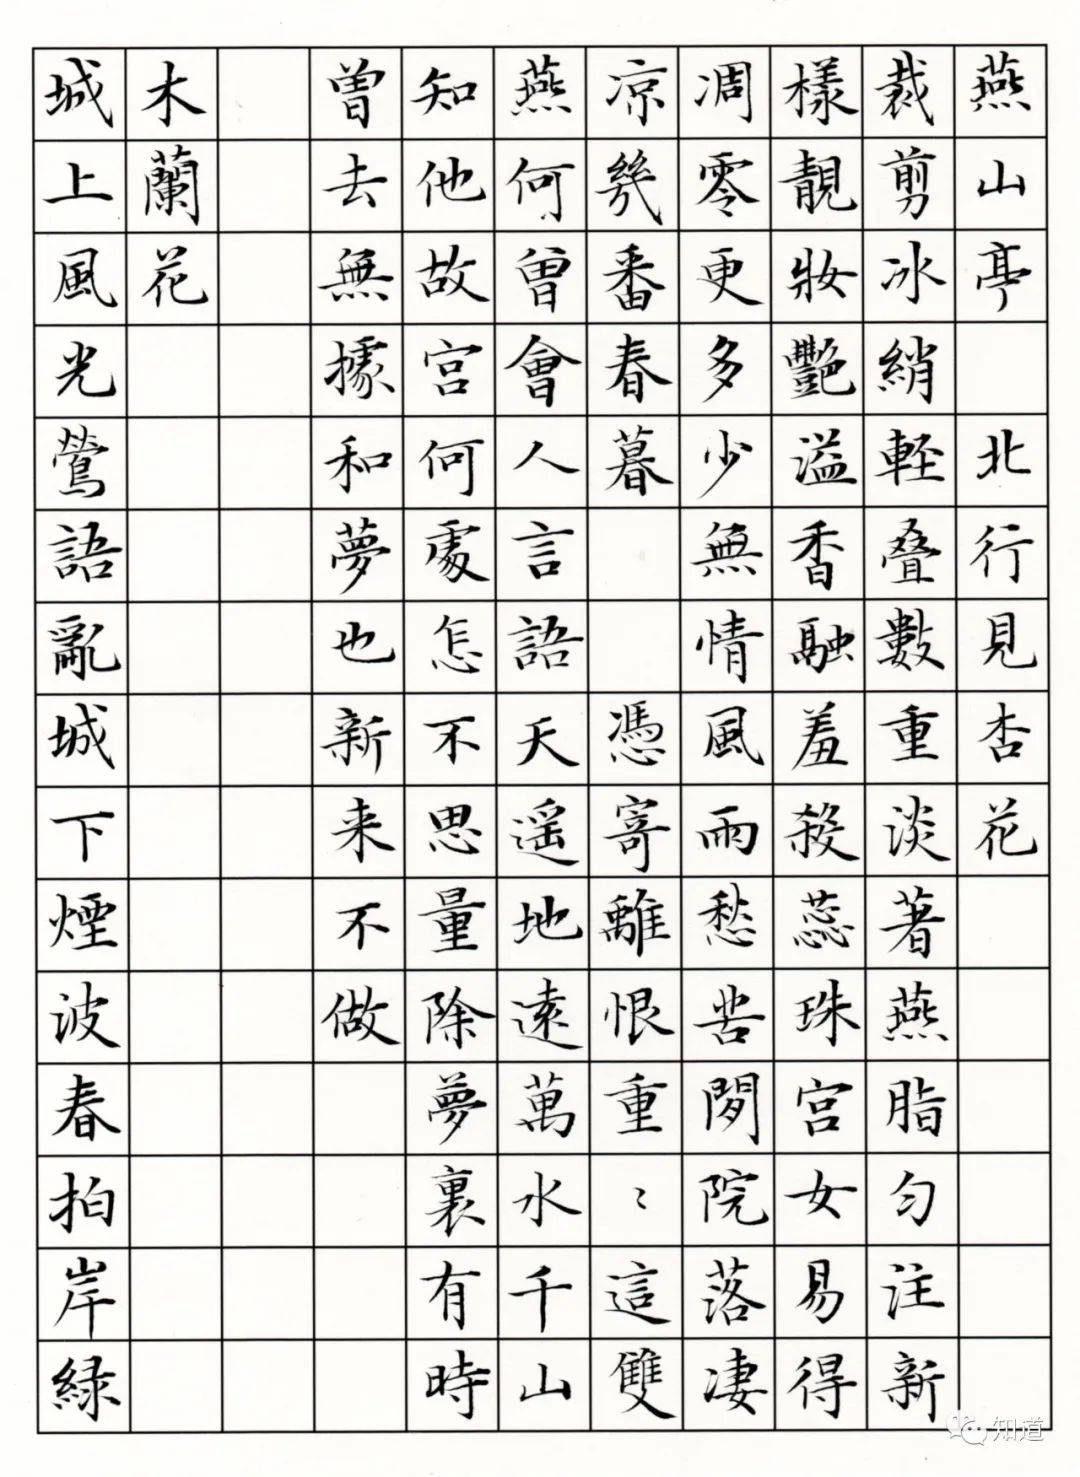 燕山亭 北行見杏花
裁剪冰綃輕叠數重淡著燕脂勻注新
樣靚妝艷溢香融羞殺蕊珠宮女易得
凋零更多少無情風雨愁苦閒院落凄
涼幾番春暮 憑寄離恨重〻這雙
燕何曾會人言語天遥地遠萬水千山
知他故宮何處怎不思量除夢裏有時
曾去無據和夢也新来不做
木蘭花
城上風光鶯語亂城下煙波春拍岸緑
知道